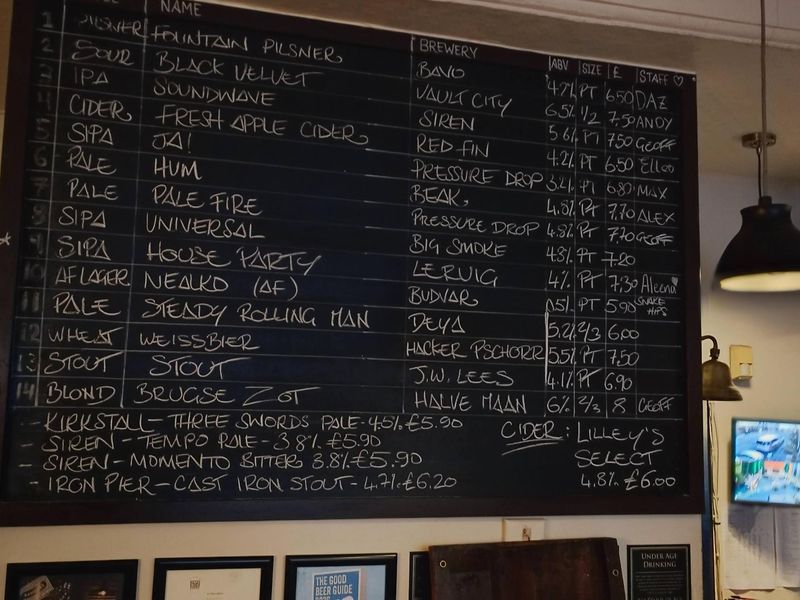 NAME BREWERY ABV SIZE £ STAFF ♡
1 PILSNER FOUNTAIN PILSNER BAVO 4.7% PT 6.50 DAZ
2 SOUR BLACK VELVET VAULT CITY 6.5% 1/2 7.50 ANDY
3 IPA SOUNDWAVE SIREN 5.6% PT 7.50 GEOFF
4 CIDER FRESH APPLE CIDER RED FIN 4.2% PT 6.50
5 SIPA JA! PRESSURE DROP 3.4% PT 6.80 MAX
6 PALE HUM BEAK 4.8% PT 7.70 ALEX
7 PALE PALE FIRE PRESSURE DROP 4.8% PT 7.70 GEOFF
8 SIPA UNIVERSAL BIG SMOKE 4.8% PT 7.20
9 SIPA HOUSE PARTY LERVIG 4% PT 7.30
10 AF LAGER NEALKO (AF) BUDVAR 0.5% PT 5.90 SNAKE HIPS
11 PALE STEADY ROLLING MAN DEYA 5.2% 2/3 6.00
12 WHEAT WEISSBIER HACKER PSCHORR 5.5% PT 7.50
13 STOUT STOUT J.W. LEES 4.1% PT 6.90
14 BLOND BRUGSE ZOT HALVE MAAN 6% 2/3 8 GEOFF
- KIRKSTALL - THREE SWORDS PALE - 4.5% £5.90
- SIREN - TEMPO PALE - 3.8% £5.90
- SIREN - MOMENTO BITTER 3.8% £5.90
- IRON PIER - CAST IRON STOUT - 4.7% £6.20
CIDER: LILLEY'S
SELECT
4.8% £6.00
THE GOOD
BEER GUIDE
UNDER AGE
DRINKING